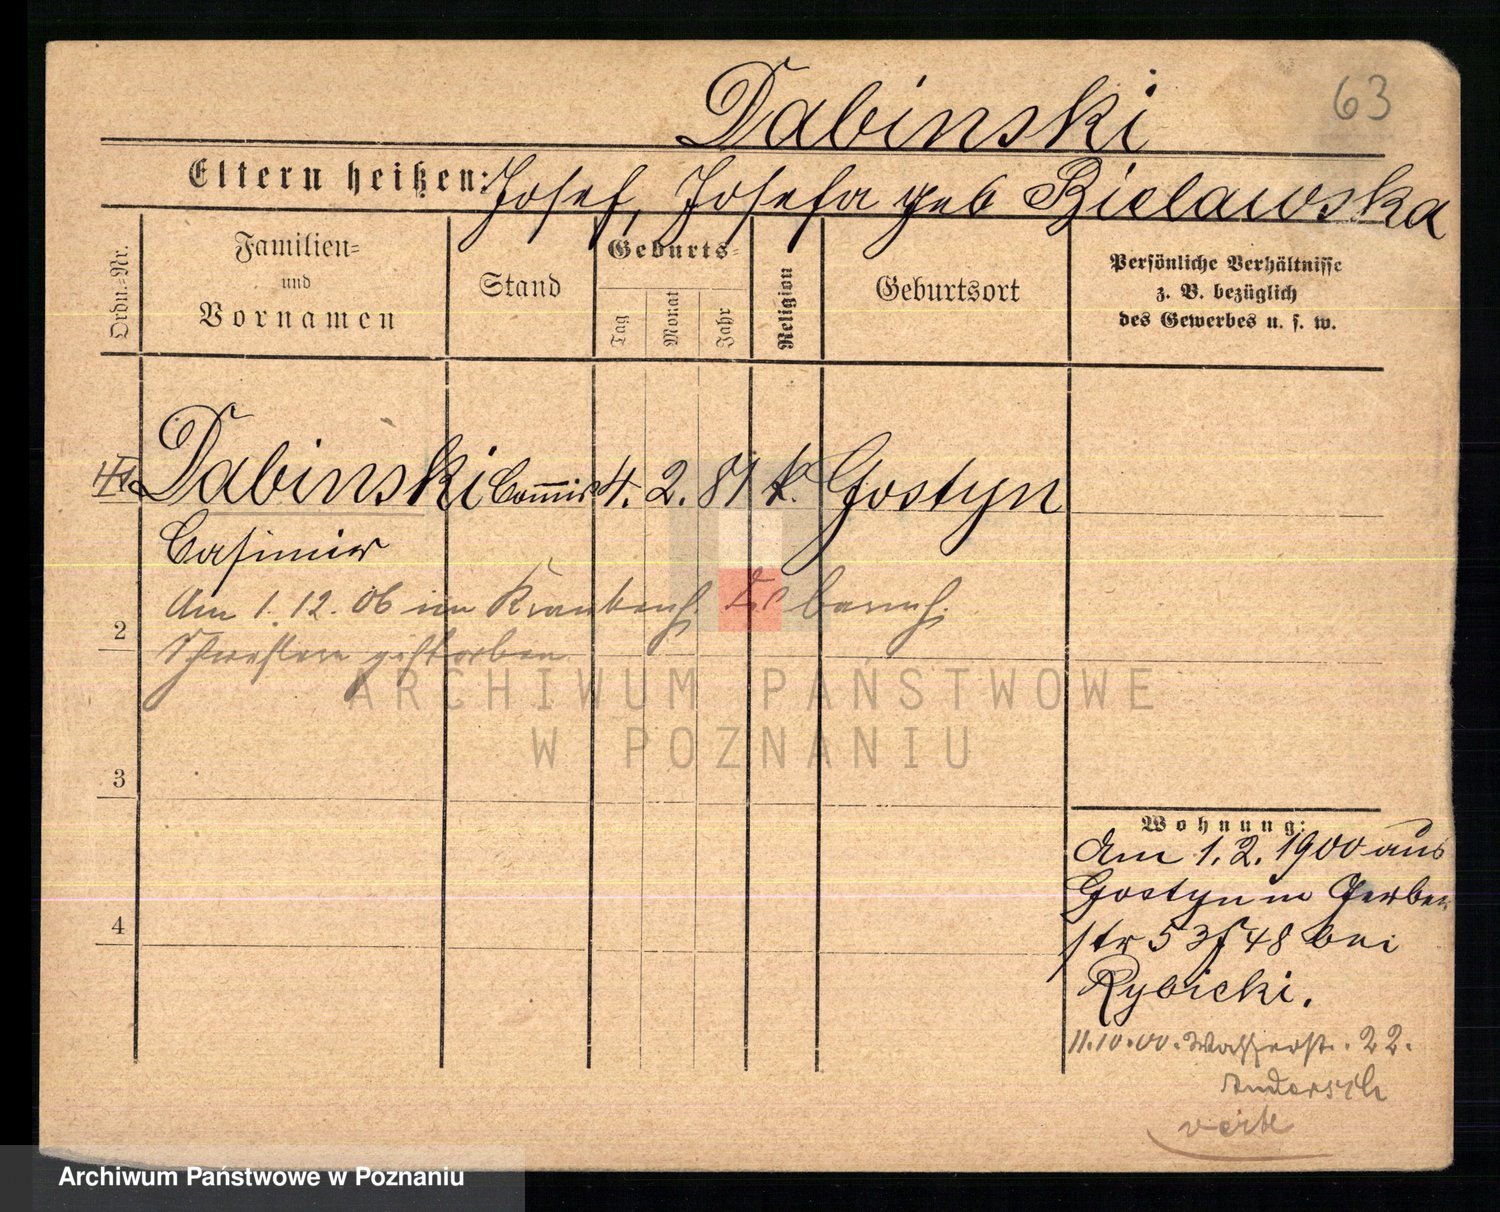 63
Dabinski
Eltern heißen: Josef, Josefa geb Bielawska
Ordn.-Nr.
Familien- und Vornamen
Stand
Geburts-
Tag
Monat
Jahr
Religion
Geburtsort
Persönliche Verhältnisse
z. B. bezüglich
des Gewerbes u. s. w.
Dabinski Commis 4. 2. 81 k. Gostyn
Casimir
Am 1.12.06 im Krankenh. der barmh.
2
Schwestern gestorben
ARCHIWUM PAŃSTWOWE
W POZNANIU
3
Wohnung:
Am 1.2.1900 aus
Gostyn n Gerber
4
str 53 48 bei
Rybicki.
11.10.00. Wasserstr. 22.
Andersch
verte
Archiwum Państwowe w Poznaniu